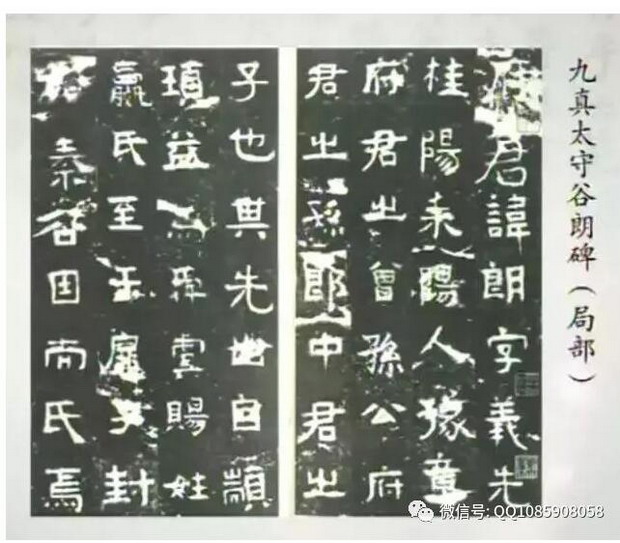 九真太守谷朗碑（局部）
君諱朗字義先
桂陽耒陽人豫章
府君之曾孫公府
君之孫郎中君之
子也其先世自顓
頊益為舜虞賜姓
嬴氏至于扉子封
秦谷因而氏焉
微信号: QQ1085908058